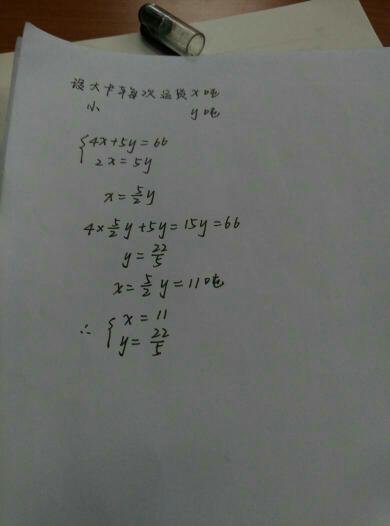 设大卡车每次运货x吨
小 y吨
{4x+5y=66
2x=5y
x=5/2y
4×5/2y+5y=15y=66
y=22/5
x=5/2y=11吨
∴{x=11
y=22/5